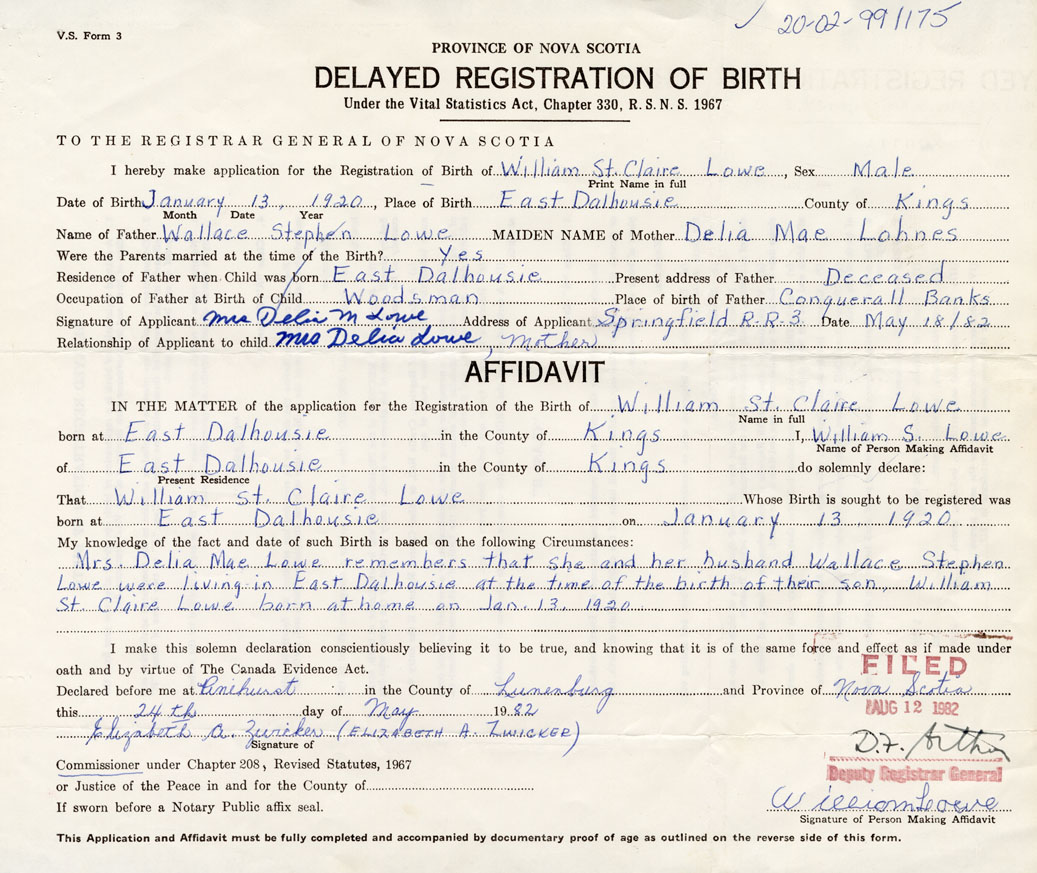 20-02-99/175
V.S. Form 3
PROVINCE OF NOVA SCOTIA
DELAYED REGISTRATION OF BIRTH
Under the Vital Statistics Act, Chapter 330, R. S. N. S. 1967
TO THE REGISTRAR GENERAL OF NOVA SCOTIA
I hereby make application for the Registration of Birth of William St. Claire Lowe, Sex Male
Print Name in full
Date of Birth January 13, 1920, Place of Birth East Dalhousie County of Kings
Month Date Year
Name of Father Wallace Stephen Lowe MAIDEN NAME of Mother Delia Mae Lohnes
Were the Parents married at the time of the Birth? Yes
Residence of Father when Child was born East Dalhousie Present address of Father Deceased
Occupation of Father at Birth of Child Woodsman Place of birth of Father Conquerall Banks
Signature of Applicant Mrs Delia M Lowe Address of Applicant Springfield R.R-3. Date May 18/82
Relationship of Applicant to child Mrs Delia Lowe, Mother
AFFIDAVIT
IN THE MATTER of the application for the Registration of the Birth of William St. Claire Lowe
Name in full
born at East Dalhousie in the County of Kings I, William S. Lowe
Name of Person Making Affidavit
of East Dalhousie in the County of Kings do solemnly declare:
Present Residence
That William St. Claire Lowe Whose Birth is sought to be registered was
born at East Dalhousie on January 13 1920
My knowledge of the fact and date of such Birth is based on the following Circumstances:
Mrs. Delia Mae Lowe remembers that she and her husband Wallace Stephen
Lowe were living in East Dalhousie at the time of the birth of their son, William
St. Claire Lowe born at home on Jan. 13, 1920
I make this solemn declaration conscientiously believing it to be true, and knowing that it is of the same force and effect as if made under
oath and by virtue of The Canada Evidence Act.
FILED
Declared before me at Pinehurst in the County of Lunenburg and Province of Nova Scotia
this 24th day of May 1982
AUG 12 1982
Elizabeth A. Zwicker (ELIZABETH A. ZWICKER)
Signature of
D.F. Arthur
Commissioner under Chapter 208, Revised Statutes, 1967
Deputy Registrar General
or Justice of the Peace in and for the County of
If sworn before a Notary Public affix seal.
William Lowe
Signature of Person Making Affidavit
This Application and Affidavit must be fully completed and accompanied by documentary proof of age as outlined on the reverse side of this form.